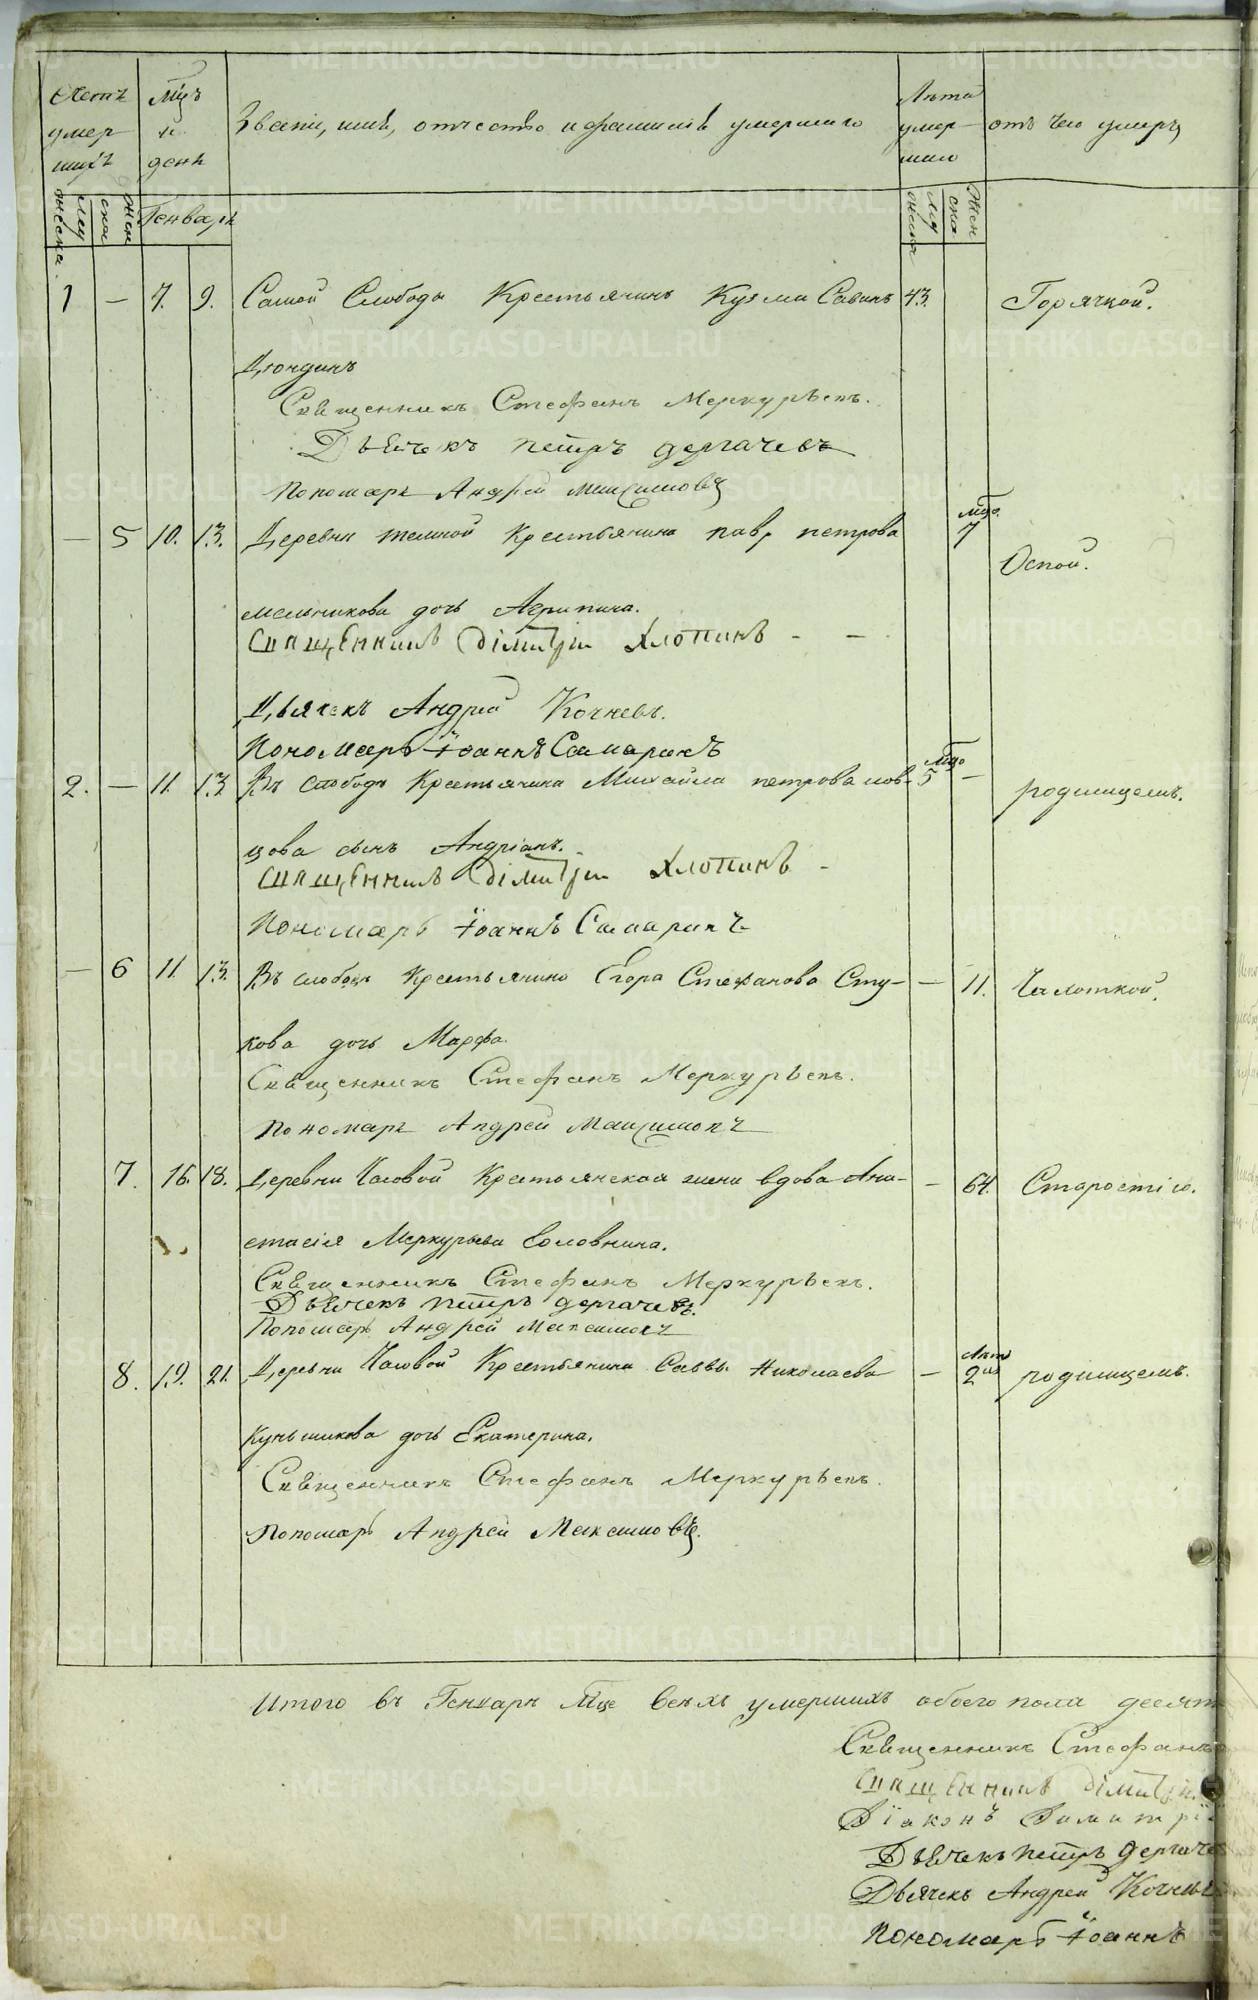 Счетъ умер шихъ
Мцъ и день
Званіе, имя, отчество и фамилія умершаго
Лѣта умер шаго
отъ чего умеръ
мужеска
женска
Генварь
мужеска
женска
1 — 7. 9. Самой Слободы Крестьянинъ Кузма Савинъ 43. Горячкой.
Дюндинъ
Священникъ Стефанъ Меркурьевъ.
Дьячекъ Петръ Дергачевъ
Пономарь Андрей Максимовъ
— 5 10. 13. Деревни темной Крестьянина павр петрова мцо. 7 Оспой.
мельникова дочь Агрипина.
Священникъ Димитрій Хлопинъ - -
Дьячекъ Андрей Кочневъ.
Пономарь Іоаннъ Самаринъ
2. — 11. 13 Въ слободѣ Крестьянина Михайла петрова нов- мцо 5 — родимцемъ.
цова сынъ Андріанъ.
Священникъ Димитрій Хлопинъ -
Пономарь Іоаннъ Самаринъ
— 6 11. 13. Въ слободѣ Крестьянина Егора Стефанова Сту- — 11. Чахоткой.
кова дочь Марфа.
Священникъ Стефанъ Меркурьевъ.
Пономарь Андрей Максимовъ
7. 16. 18. Деревни Часовой Крестьянская жена вдова Ана- — 64. Старостію.
стасія Меркурьева Соловнина.
Священникъ Стефанъ Меркурьевъ.
Дьячекъ Петръ Дергачевъ.
Пономарь Андрей Максимовъ
8. 19. 21. Деревни Часовой Крестьянина Саввы Николаева — 2 родимцемъ.
дочь Екатерина.
Священникъ Стефанъ Меркурьевъ.
Пономарь Андрей Максимовъ.
Итого въ Генварѣ Мце всѣхъ умершихъ обоего пола десят
Священникъ Стефанъ
Священникъ Димитрій
Діаконъ Димитрій
Дьячекъ Петръ Дергаче
Дьячекъ Андрей Кочневъ
Пономарь Іоаннъ
METRIKI.GASO-URAL.RU